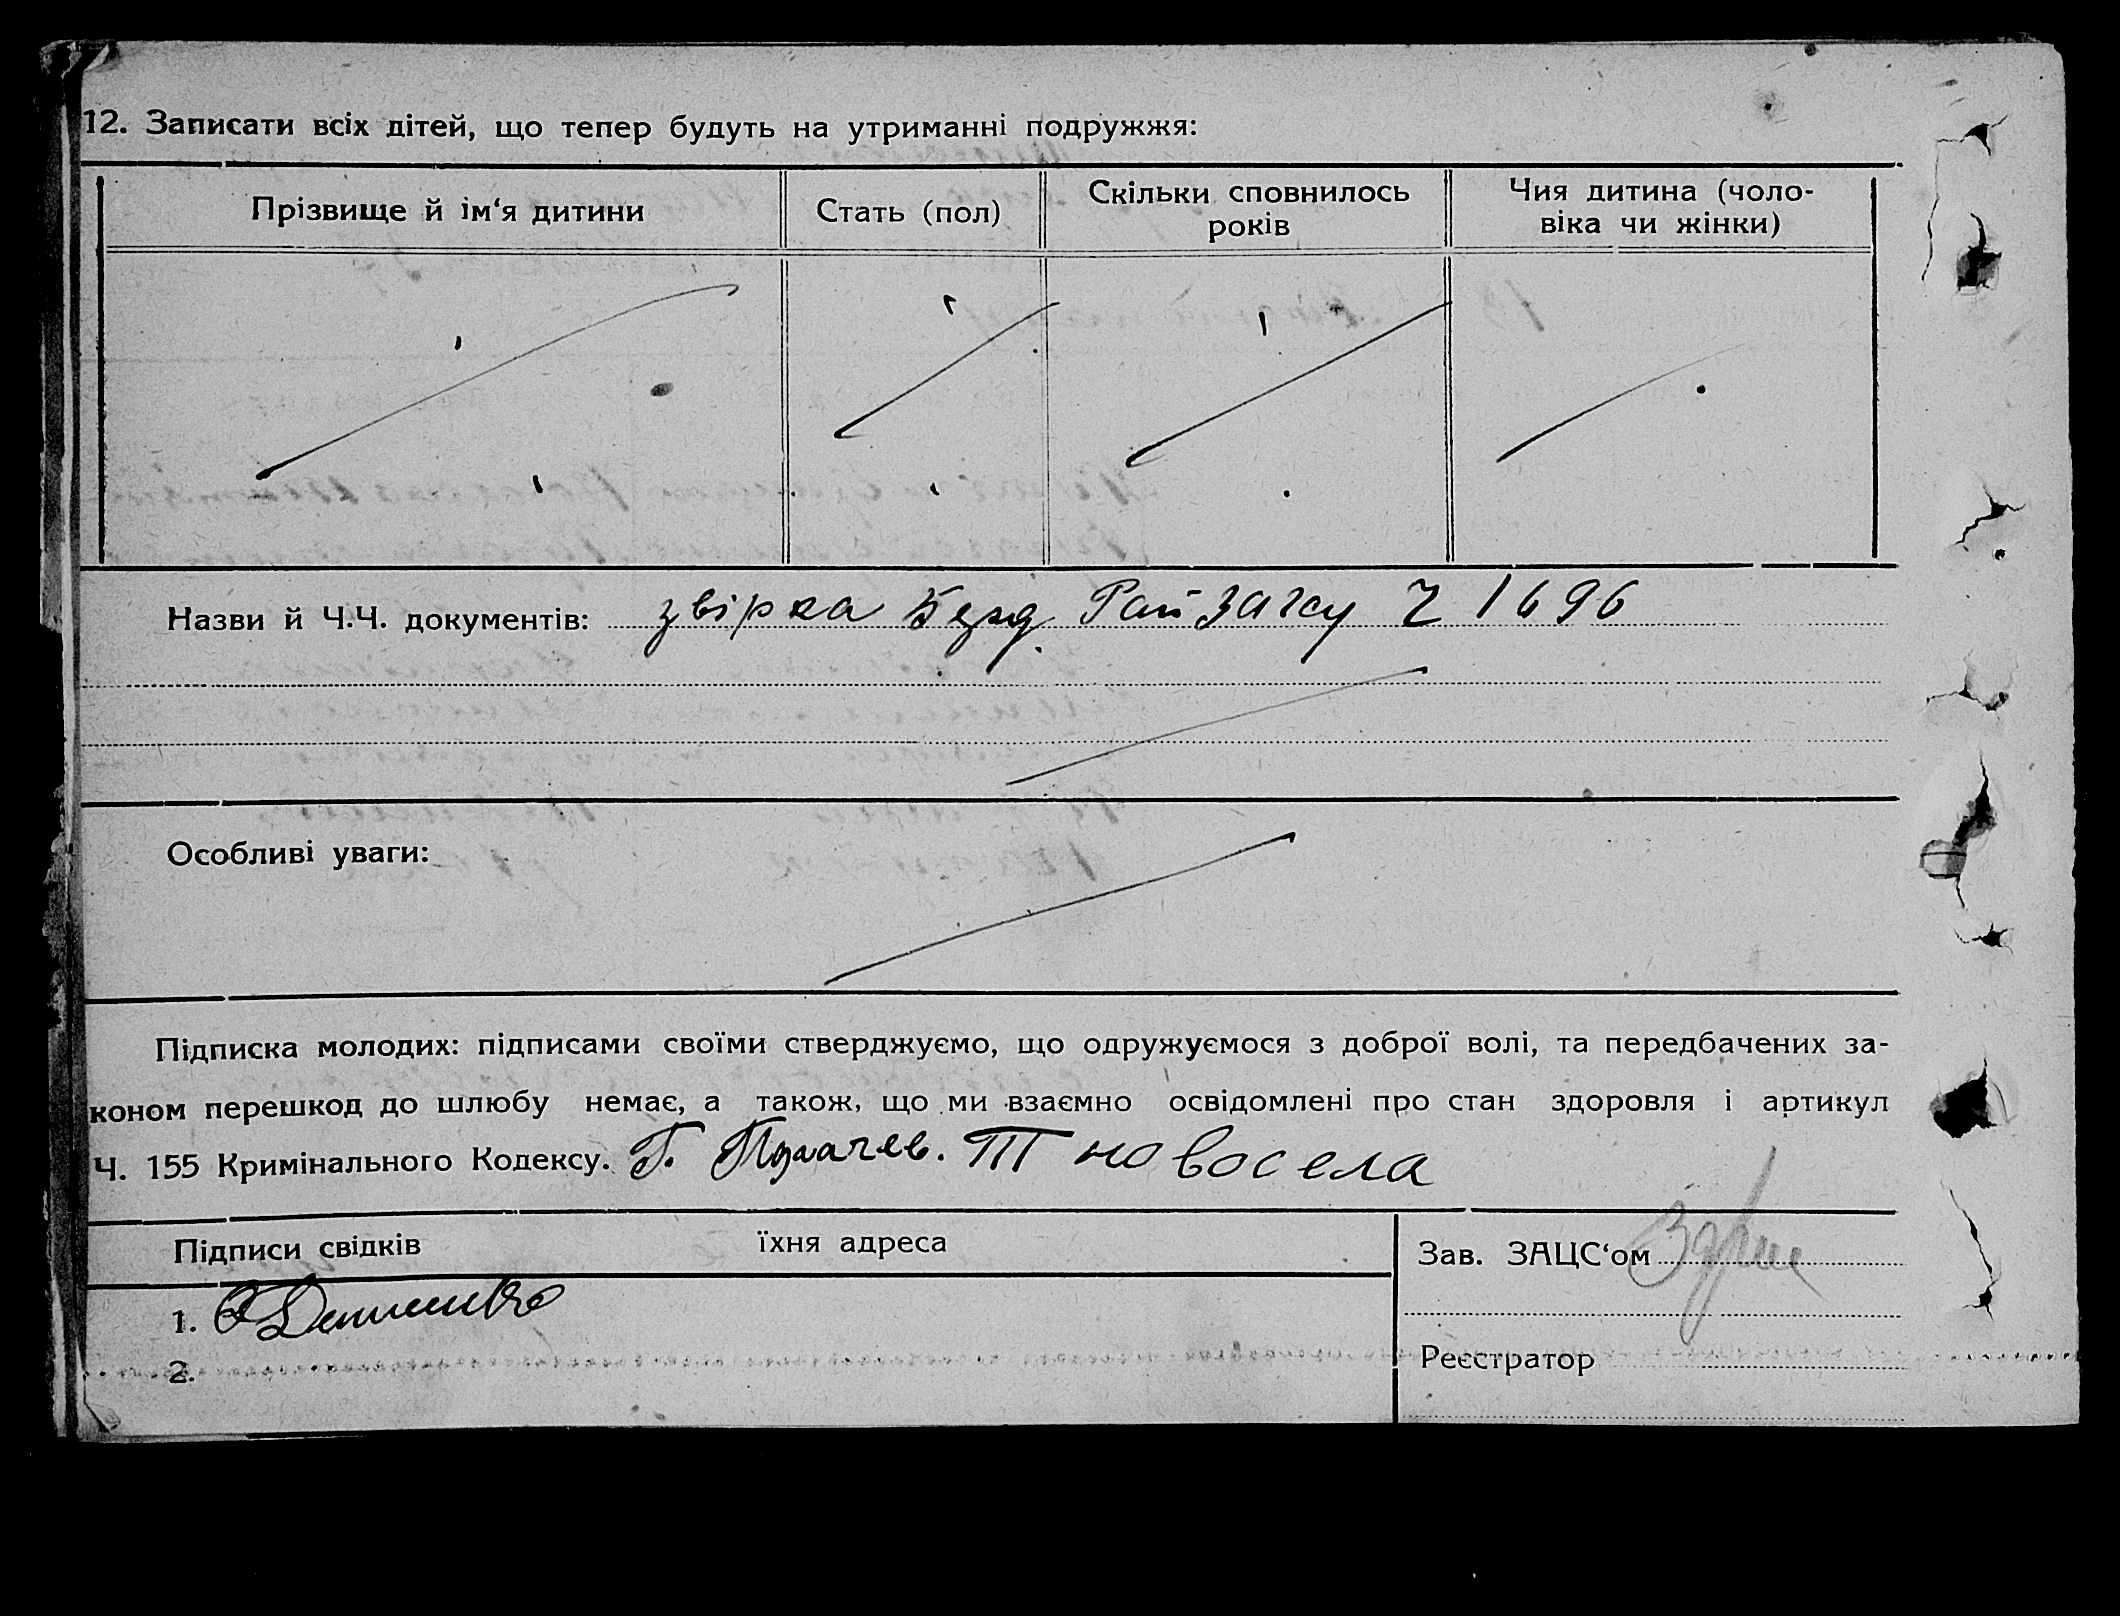 12. Записати всіх дітей, що тепер будуть на утриманні подружжя:
Прізвище й ім‘я дитини
Стать (пол)
Скільки сповнилось
років
Чия дитина (чоло-
віка чи жінки)
Назви й Ч.Ч. документів: звірка Райзагсу 1696
Особливі уваги:
Підписка молодих: підписами своїми стверджуємо, що одружуємося з доброї волі, та передбачених за-
коном перешкод до шлюбу немає, а також, що ми взаємно освідомлені про стан здоровля і артикул
Ч. 155 Кримінального Кодексу. Т новосела
Підписи свідків їхня адреса
Зав. ЗАЦС‘ом
1.
2.
Реєстратор